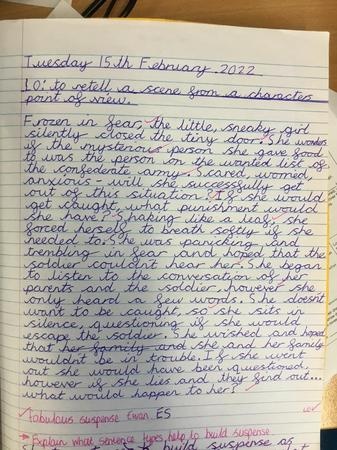 Tuesday 15th February 2022
LO: to retell a scene from a characters
point of view.
Frozen in fear, the little, sneaky girl
silently closed the tiny door. She wonders
if the mysterious person she gave food
to was the person on the wanted list of
the confederate army. Scared, worried,
anxious will she successfully get
out of this situation? If she would
get caught, what punishment would
she have? Shaking like a leaf, she
forced herself to breath softly if she
needed to. She was panicking and
trembling in fear and hoped that the
soldier couldn't hear her. She began
to listen to the conversation of her
parents and the soldier, however she
only heard a few words. She doesn't
want to be caught, so she sits in
silence, questioning if she would
escape the soldier. She wished and hoped
that her family and she and her family
wouldn't be in trouble. If she went
out she would have been questioned,
however if she lies and they find out...
what would happen to her?
Fabulous suspense ES
Explain what sentence types help to build suspense
to build suspense as